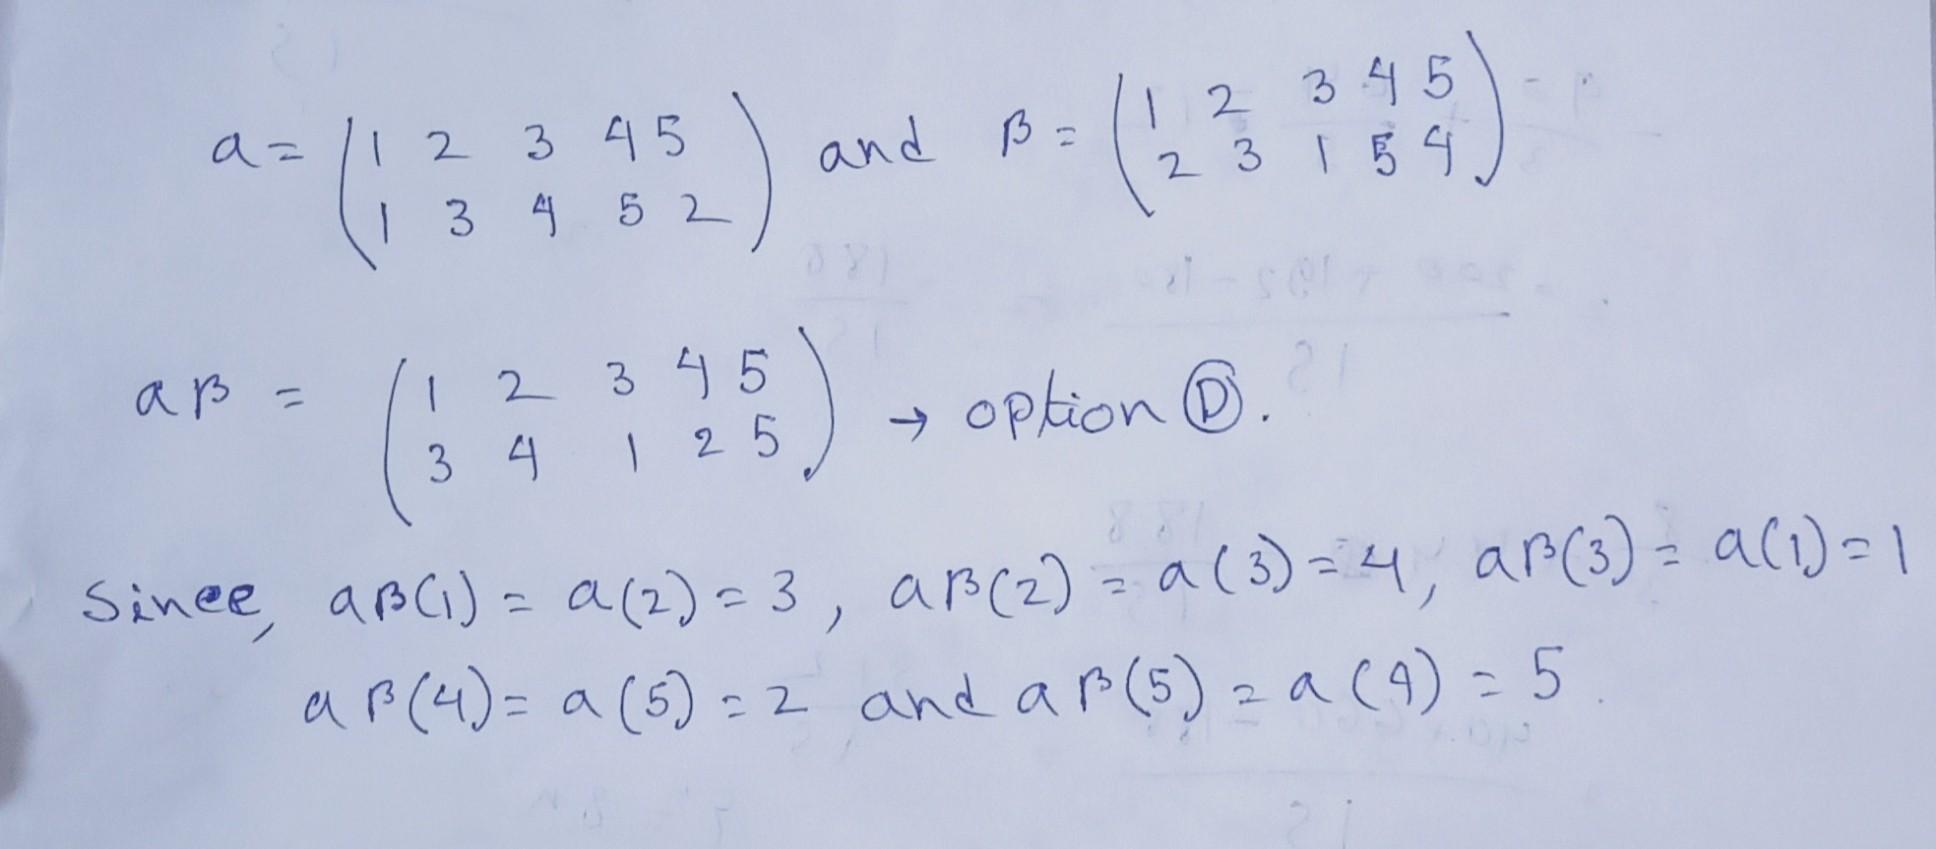 a = (1 2 3 4 5 / 1 3 4 5 2) and β = (1 2 3 4 5 / 2 3 1 5 4).
aβ = (1 2 3 4 5 / 3 4 1 2 5). → option Ⓓ.
Since, aβ(1) = a(2) = 3, aβ(2) = a(3) = 4, aβ(3) = a(1) = 1
aβ(4) = a(5) = 2 and aβ(5) = a(4) = 5.